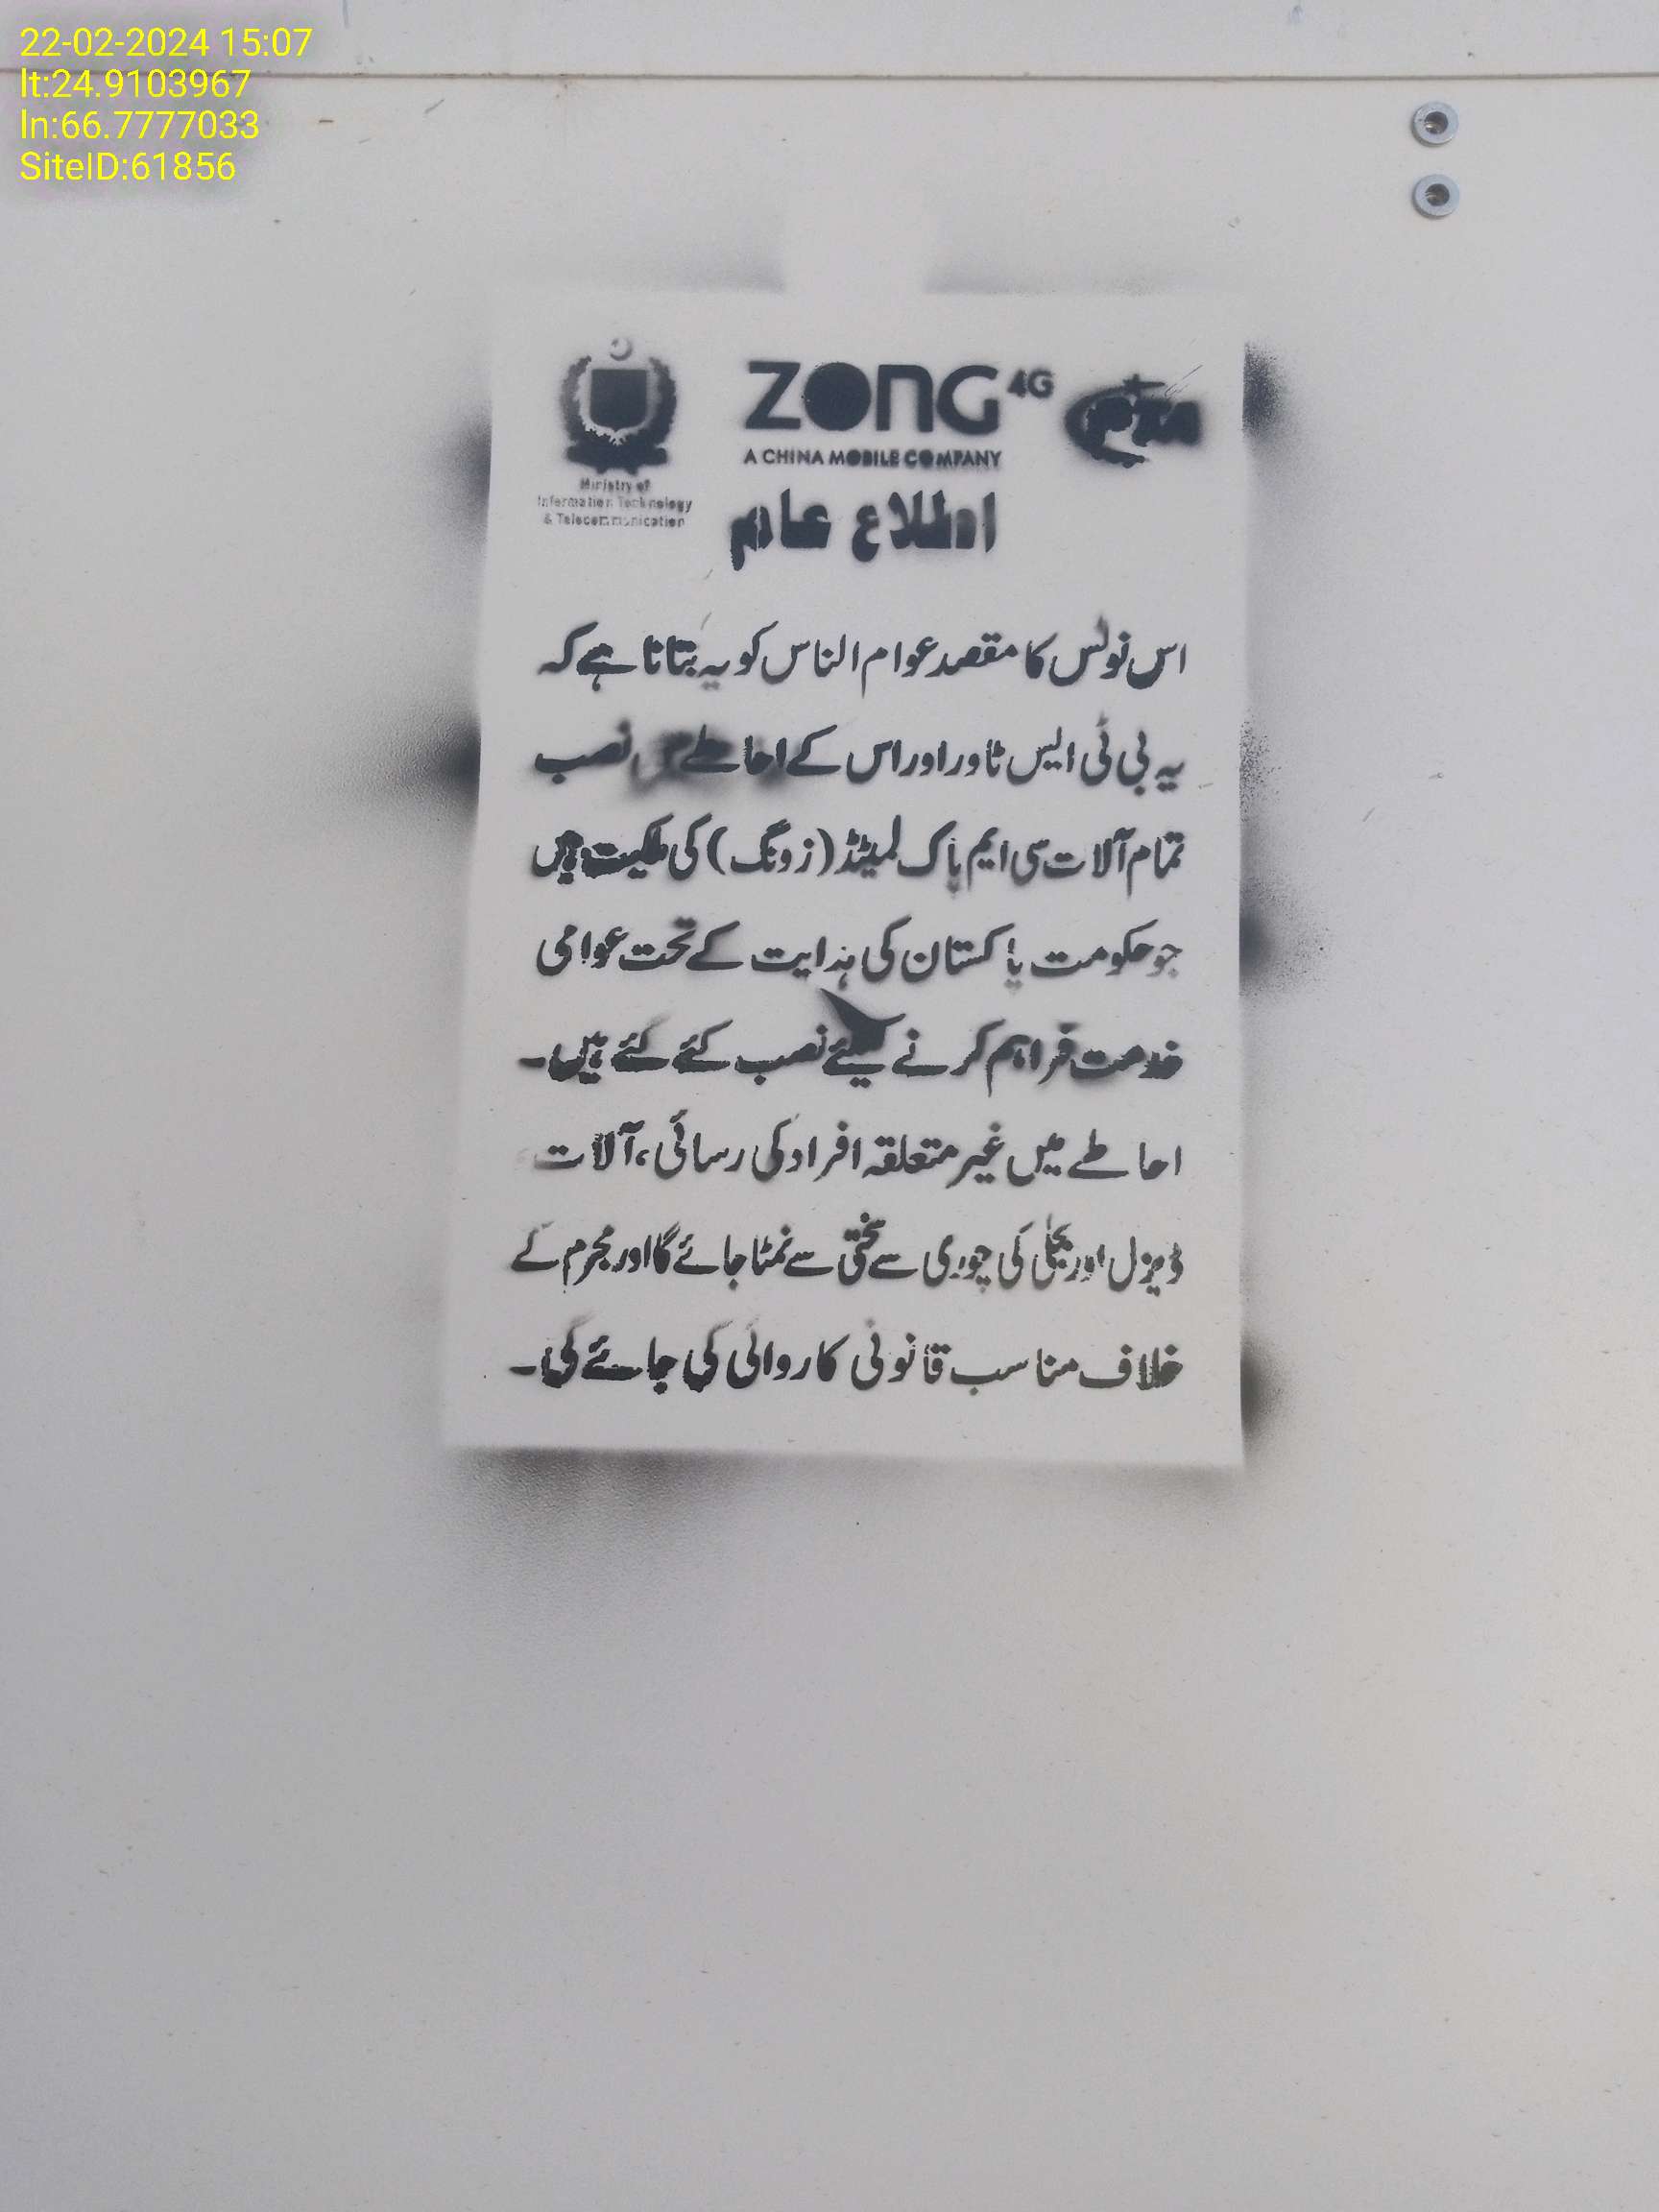 22-02-2024 15:07
lt:24.9103967
ln:66.7777033
SiteID:61856
ZONG 4G
A CHINA MOBILE COMPANY
Ministry of
Information Technology
& Telecommunication
اطلاع عام
اس نوٹس کا مقصد عوام الناس کو یہ بتانا ہے کہ
یہ بی ٹی ایس ٹاور اور اس کے احاطے نصب
تمام آلات سی ایم پاک لمیٹڈ (زونگ) کی ملکیت ہیں
جو حکومت پاکستان کی ہدایت کے تحت عوامی
خدمت فراہم کرنے کیلئے نصب کئے گئے ہیں۔
احاطے میں غیر متعلقہ افراد کی رسائی، آلات
ڈیزل اور بجلی کی چوری سے سختی سے نمٹا جائے گا اور مجرم کے
خلاف مناسب قانونی کاروائی کی جائے گی۔